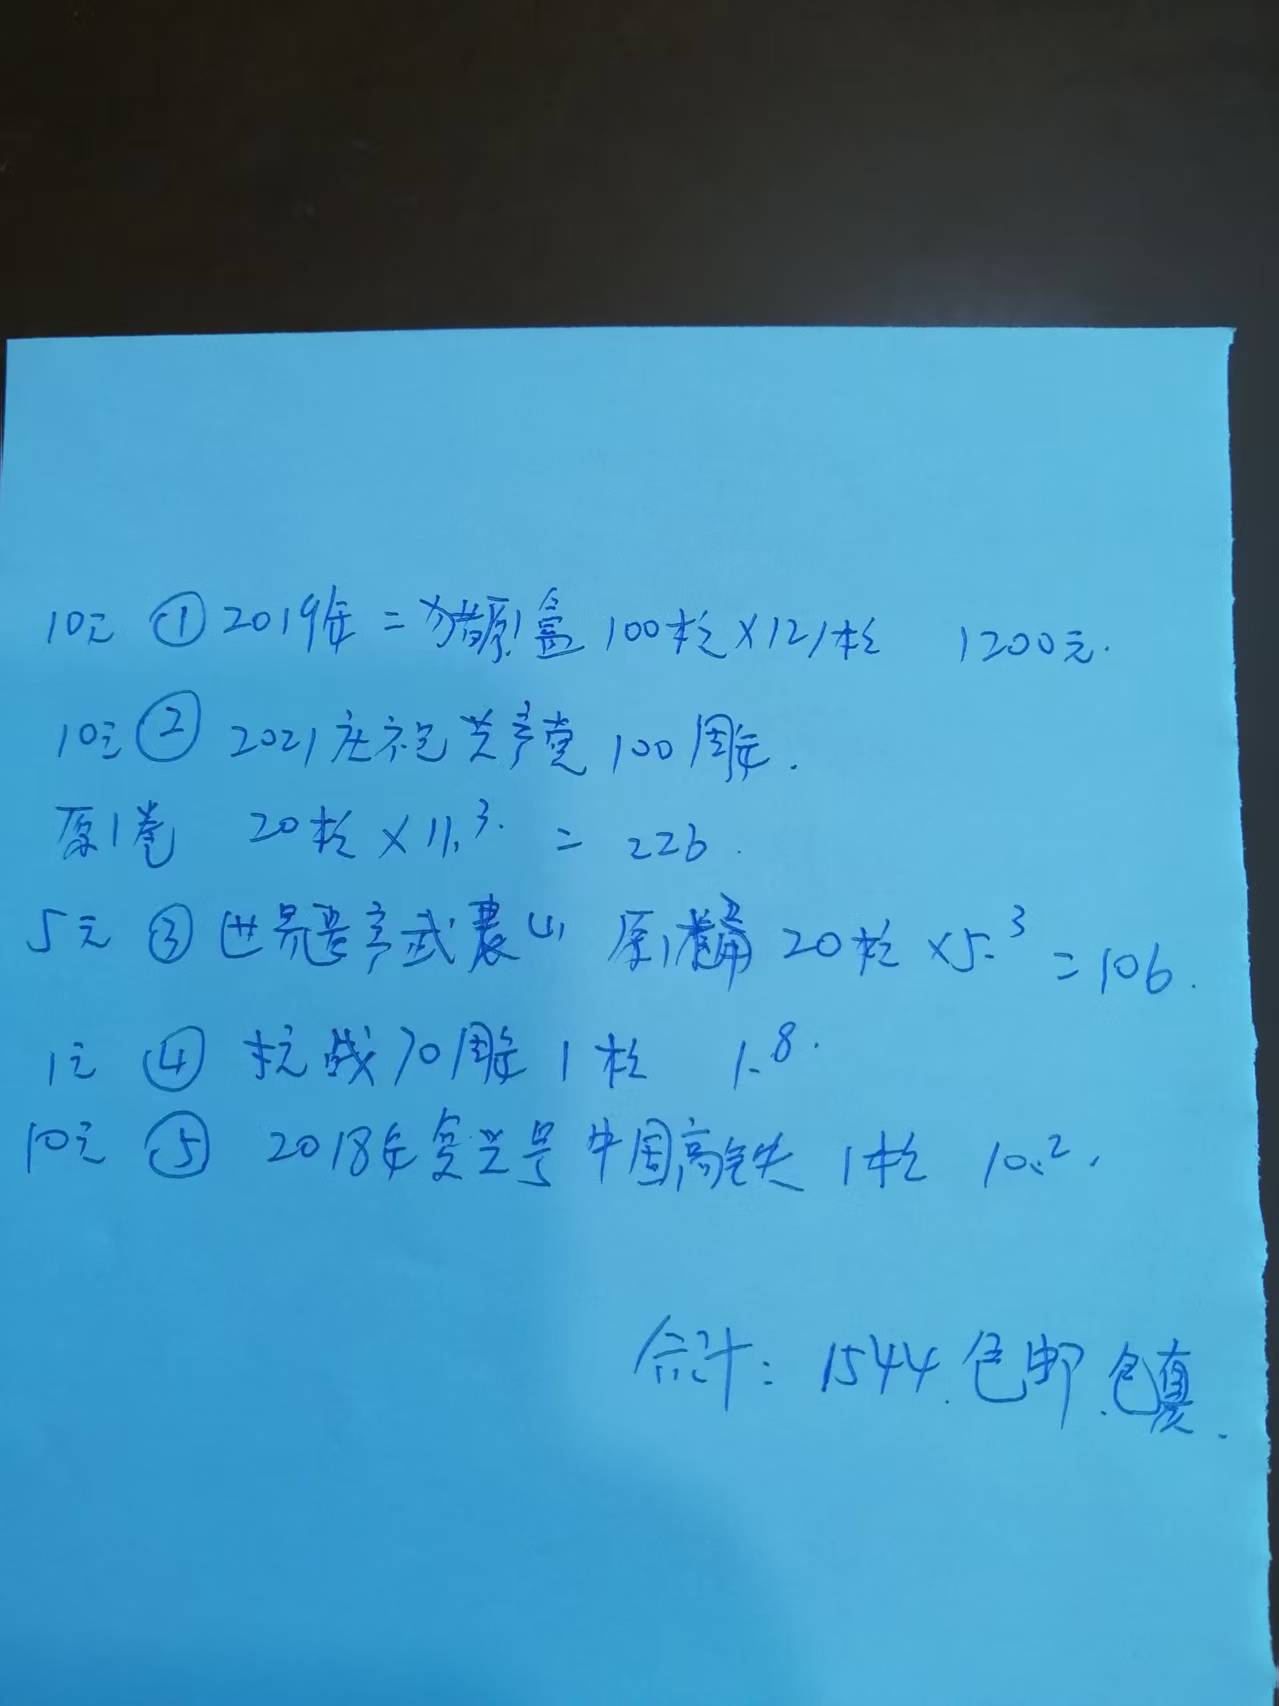 10元 ① 2019年二猪原盒100枚×12/枚 1200元.
10元 ② 2021庆祝共产党100周年.
原卷 20枚×11.3. = 226.
5元 ③ 世界遗产武夷山 原卷 20枚×5.3 = 106.
1元 ④ 抗战70周年1枚 1.8.
10元 ⑤ 2018年复兴号中国高铁1枚 10.2.
合计: 1544.包邮.包真.